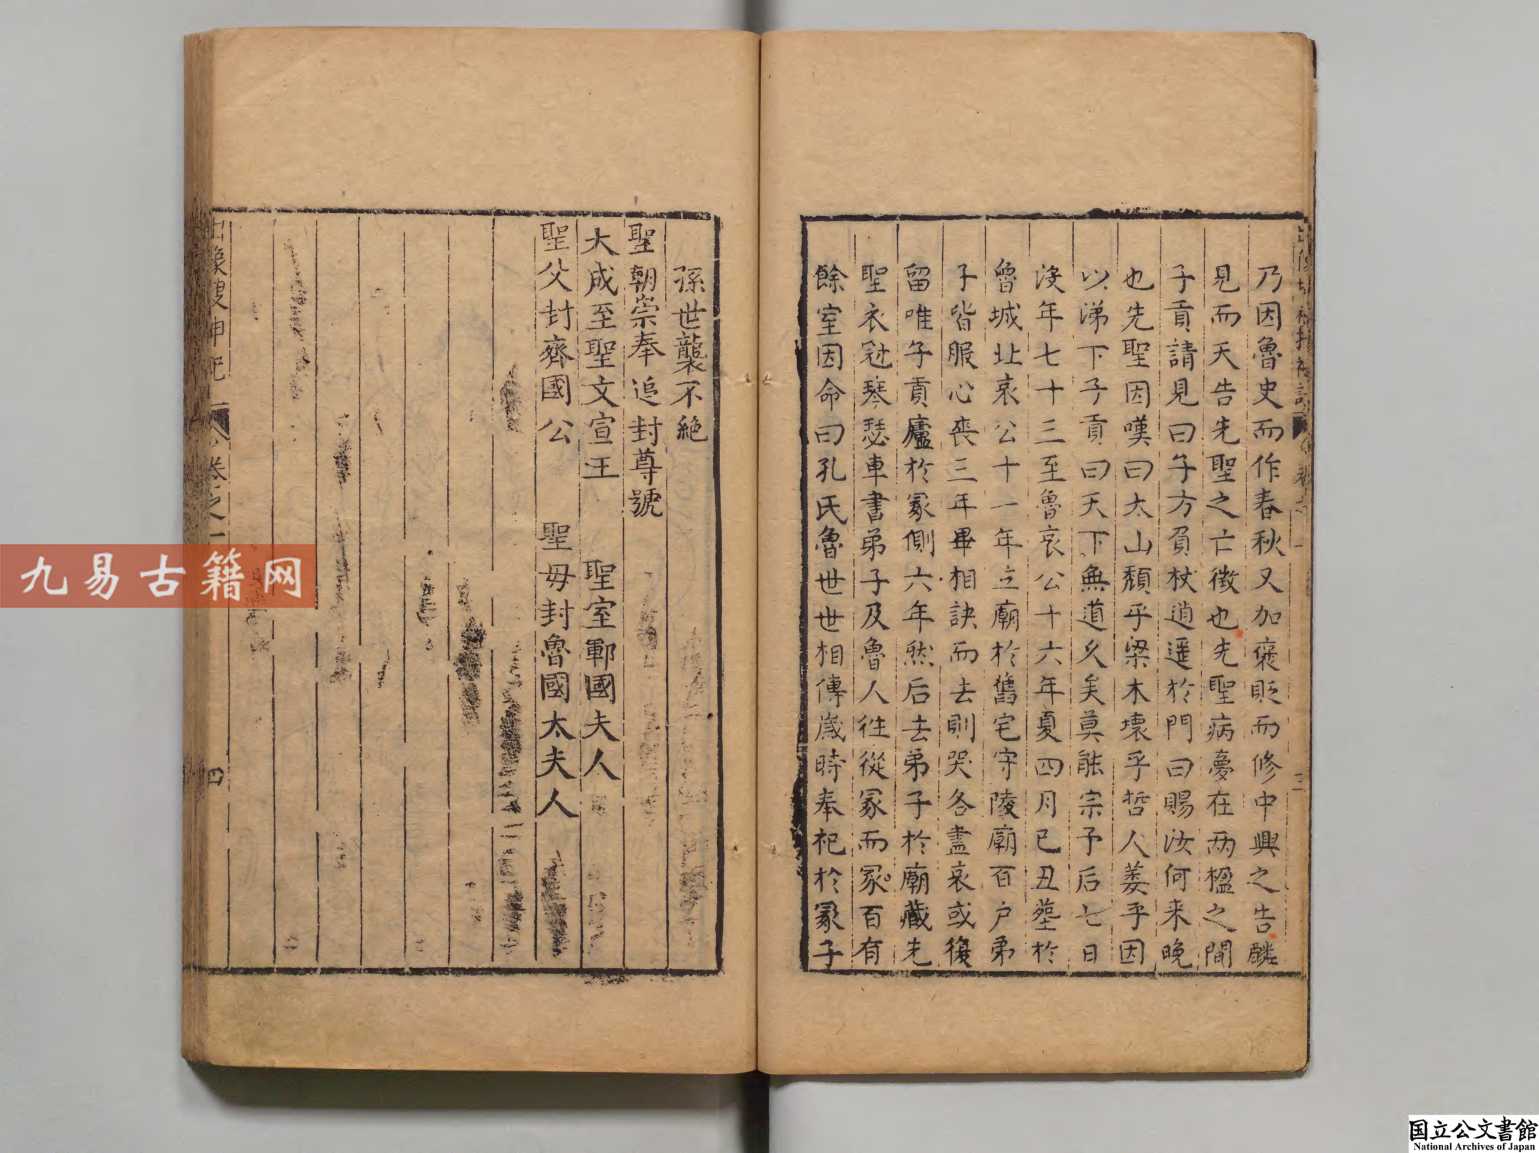 乃因魯史而作春秋又加褒貶而修中興之告麟
見而天告先聖之亡徵也先聖病夢在两楹之間
子貢請見曰子方負杖逍遥於門曰賜汝何来晚
也先聖因嘆曰太山頹乎梁木壞乎哲人萎乎因
以涕下子貢曰天下無道久矣莫能宗予后七日
沒年七十三至魯哀公十六年夏四月已丑塟於
魯城北哀公十一年立廟於舊宅守陵廟百户弟
子皆服心喪三年畢相訣而去則哭各盡哀或復
留唯子貢廬於冢側六年然后去弟子於廟藏先
聖衣冠琴瑟車書弟子及魯人徃從冢而冢百有
餘室因命曰孔氏魯世世相傳歲時奉祀於冢子
孫世襲不絶
聖朝崇奉追封尊號
大成至聖文宣王 聖室鄆國夫人
聖父封齊國公 聖母封魯國太夫人
出像搜神記 卷之一 四
九易古籍网
国立公文書館
National Archives of Japan